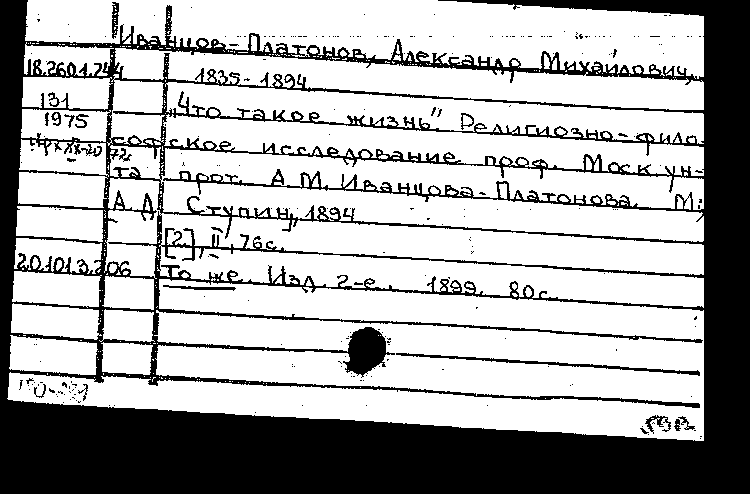 Иванцов-Платонов, Александр Михайлович,
18.260.1.244 1835-1894
131 „Что такое жизнь". Религиозно-фило-
1975
софское исследование проф. Моск. ун-
та прот. А.М. Иванцова-Платонова. М.,
А.Д. Ступин, 1894
[2], II, 76с.
20.101.3.206 То же. Изд. 2-е. 1899. 80с.